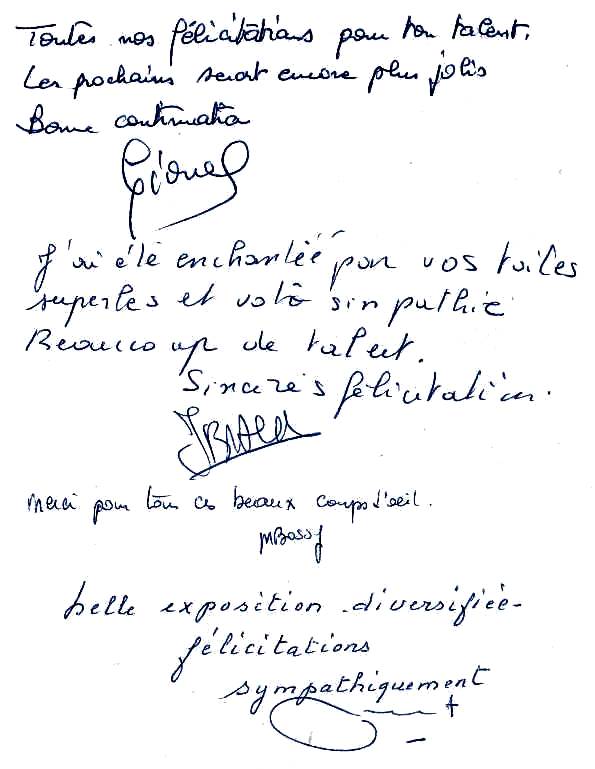 Toutes nos félicitations pour ton talent.
Les prochains seront encore plus jolis
Bonne continuation
Lionel
J'ai été enchantée par vos toiles
superbes et votre sinpathie
Beaucoup de talent.
Sincères félicitation.
merci pour tous ces beaux coups d'oeil.
MBossy
belle exposition diversifiée-
félicitations
sympathiquement